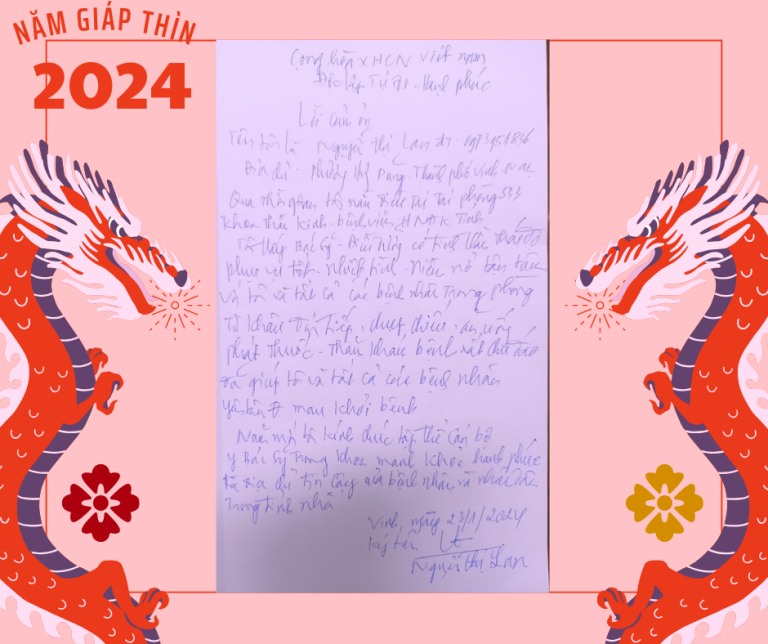 NĂM GIÁP THÌN
2024
Cộng hòa XHCN Việt Nam
Độc lập Tự Do - Hạnh phúc
Lời cảm ơn
Tên tôi là Nguyễn Thị Lan đt: 0973951836
Địa chỉ - Phường Hưng Dũng - Thành phố Vinh
Qua thời gian tôi nằm điều trị tại phòng 537
Khoa Thần Kinh - bệnh viện HNĐK Tỉnh
Tôi thấy Bác Sỹ - Điều dưỡng có tinh thần thái độ
phục vụ tốt - nhiệt tình - niềm nở tận tâm
với tôi và tất cả các bệnh nhân trong phòng
Từ khâu Tiếp, ăn, uống
phát thuốc - Thăm khám bệnh rất chu đáo
đã giúp tôi và tất cả các bệnh nhân
yên tâm mau khỏi bệnh
Năm mới tôi kính chúc tập thể cán bộ
y Bác Sỹ trong khoa mạnh khỏe hạnh phúc
là địa chỉ tin cậy của bệnh nhân và nhân dân
trong tỉnh nhà
Vinh, ngày 23/1/2024
ký tên
Nguyễn Thị Lan